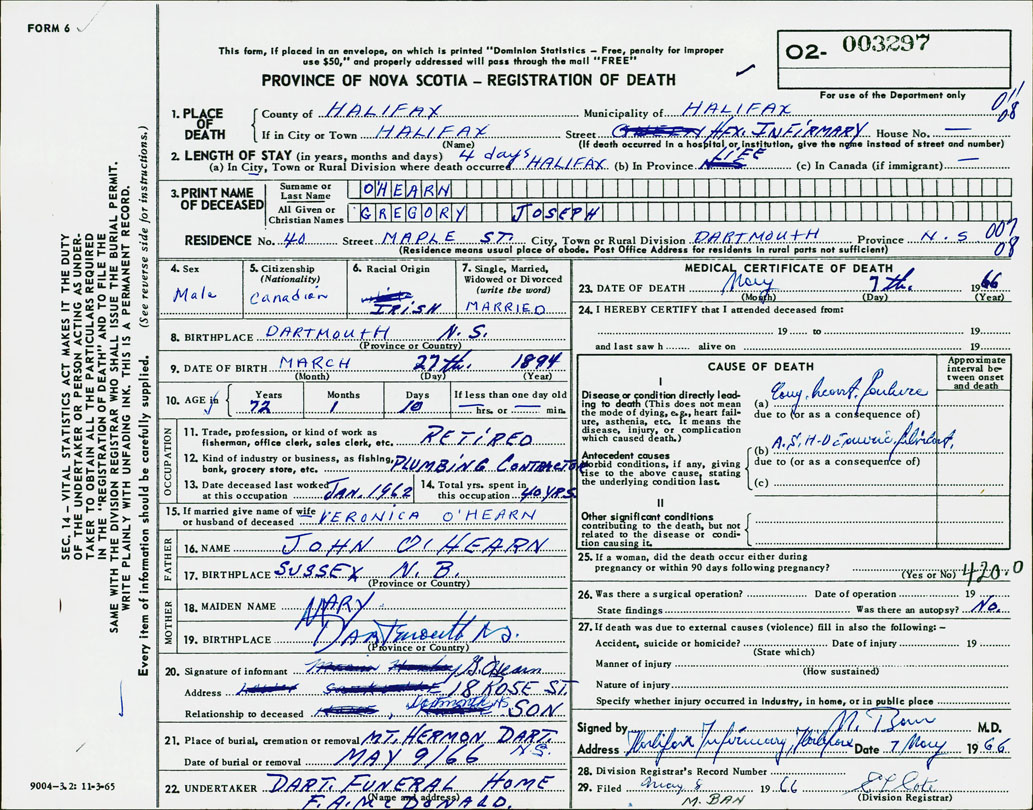 FORM 6
This form, if placed in an envelope, on which is printed "Dominion Statistics – Free, penalty for improper
use $50," and properly addressed will pass through the mail "FREE"
PROVINCE OF NOVA SCOTIA – REGISTRATION OF DEATH
O2- 003297
For use of the Department only
011
08
1. PLACE OF DEATH
County of HALIFAX Municipality of HALIFAX
If in City or Town HALIFAX Street HFX. INFIRMARY House No. —
(Name) (If death occurred in a hospital or institution, give the name instead of street and number)
2. LENGTH OF STAY (in years, months and days) 4 days
(a) In City, Town or Rural Division where death occurred HALIFAX (b) In Province LIFE (c) In Canada (if immigrant) —
3. PRINT NAME OF DECEASED
Surname or Last Name O'HEARN
All Given or Christian Names GREGORY JOSEPH
RESIDENCE No. 40 Street MAPLE ST. City, Town or Rural Division DARTMOUTH Province N.S 007
08
(Residence means usual place of abode. Post Office Address for residents in rural parts not sufficient)
4. Sex
Male
5. Citizenship
(Nationality)
Canadian
6. Racial Origin
IRISH
7. Single, Married,
Widowed or Divorced
(write the word)
MARRIED
8. BIRTHPLACE DARTMOUTH N.S.
(Province or Country)
9. DATE OF BIRTH MARCH 27th. 1894
(Month) (Day) (Year)
10. AGE in Years Months Days If less than one day old
72 1 10 — hrs. or — min.
OCCUPATION
11. Trade, profession, or kind of work as
fisherman, office clerk, sales clerk, etc. RETIRED
12. Kind of industry or business, as fishing,
bank, grocery store, etc. PLUMBING CONTRACTOR
13. Date deceased last worked
at this occupation JAN. 1962
14. Total yrs. spent in
this occupation 40 YRS.
15. If married give name of wife
or husband of deceased VERONICA O'HEARN
FATHER
16. NAME JOHN O'HEARN
17. BIRTHPLACE SUSSEX N.B.
(Province or Country)
MOTHER
18. MAIDEN NAME MARY
19. BIRTHPLACE Dartmouth N.S.
(Province or Country)
20. Signature of informant G. O'Hearn
Address 18 ROSE ST.
Dartmouth NS
Relationship to deceased SON
21. Place of burial, cremation or removal MT. HERMON DART.
N.S.
Date of burial or removal MAY 9/66
22. UNDERTAKER DART. FUNERAL HOME
(Name and address)
MEDICAL CERTIFICATE OF DEATH
23. DATE OF DEATH May 7th. 1966
(Month) (Day) (Year)
24. I HEREBY CERTIFY that I attended deceased from:
19 to 19
and last saw h alive on 19
CAUSE OF DEATH
Approximate
interval be-
tween onset
and death
I
Disease or condition directly lead-
ing to death (This does not mean
the mode of dying, e.g., heart fail-
ure, asthenia, etc. It means the
disease, injury, or complication
which caused death.)
(a) Cong. heart failure
due to (or as a consequence of)
Antecedent causes
Morbid conditions, if any, giving
rise to the above cause, stating
the underlying condition last.
(b) A.S.H.D
due to (or as a consequence of)
(c)
II
Other significant conditions
contributing to the death, but not
related to the disease or condi-
tion causing it.
25. If a woman, did the death occur either during
pregnancy or within 90 days following pregnancy?
(Yes or No) 420.0
26. Was there a surgical operation? Date of operation 19
State findings Was there an autopsy? No.
27. If death was due to external causes (violence) fill in also the following: –
Accident, suicide or homicide? Date of injury 19
(State which)
Manner of injury
(How sustained)
Nature of injury
Specify whether injury occurred in Industry, in home, or in public place
Signed by M. Ban M.D.
Address Halifax Infirmary, Halifax Date 7 May 1966
28. Division Registrar's Record Number
29. Filed May 8 1966
(Division Registrar)
M. BAN
SEC. 14 – VITAL STATISTICS ACT MAKES IT THE DUTY
OF THE UNDERTAKER OR PERSON ACTING AS UNDER-
TAKER TO OBTAIN ALL THE PARTICULARS REQUIRED
IN THE "REGISTRATION OF DEATH" AND TO FILE THE
SAME WITH THE DIVISION REGISTRAR WHO SHALL ISSUE THE BURIAL PERMIT.
WRITE PLAINLY WITH UNFADING INK. THIS IS A PERMANENT RECORD.
Every item of information should be carefully supplied. (See reverse side for instructions.)
9004-3.2: 11-3-65